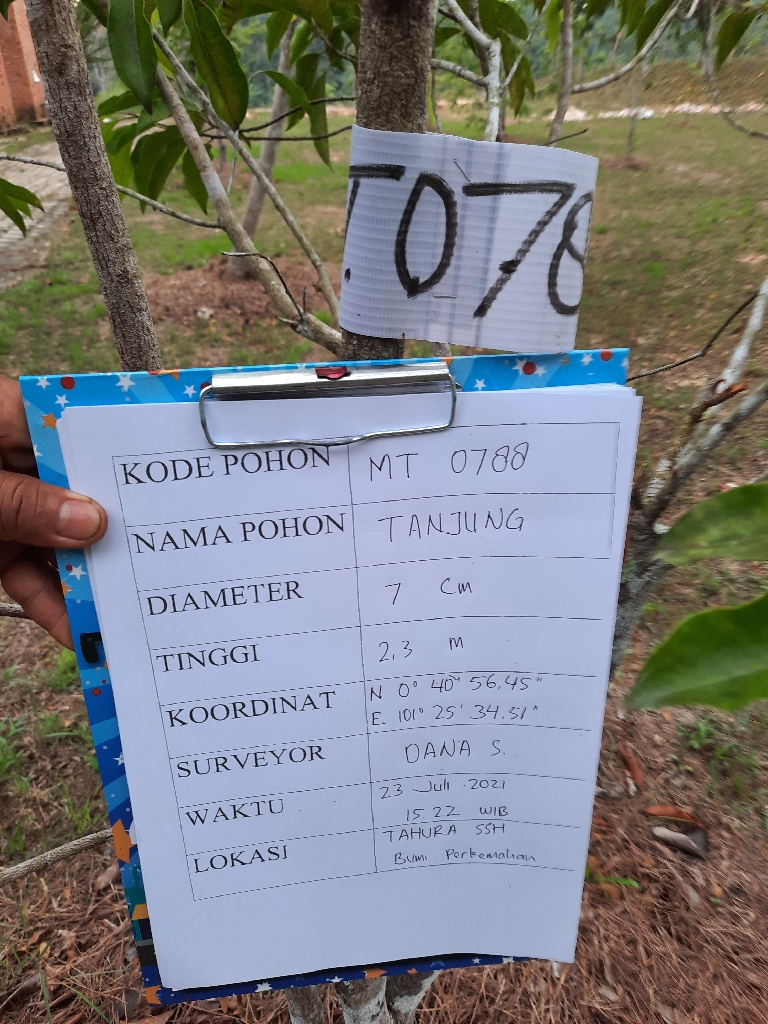 T 078
KODE POHON MT 0788
NAMA POHON TANJUNG
DIAMETER 7 cm
TINGGI 2,3 m
KOORDINAT N 0° 40' 56.45"
E. 101° 25' 34.51"
SURVEYOR DANA S.
WAKTU 23 Juli 2021
15 22 WIB
LOKASI TAHURA SSH
Bumi Perkemahan